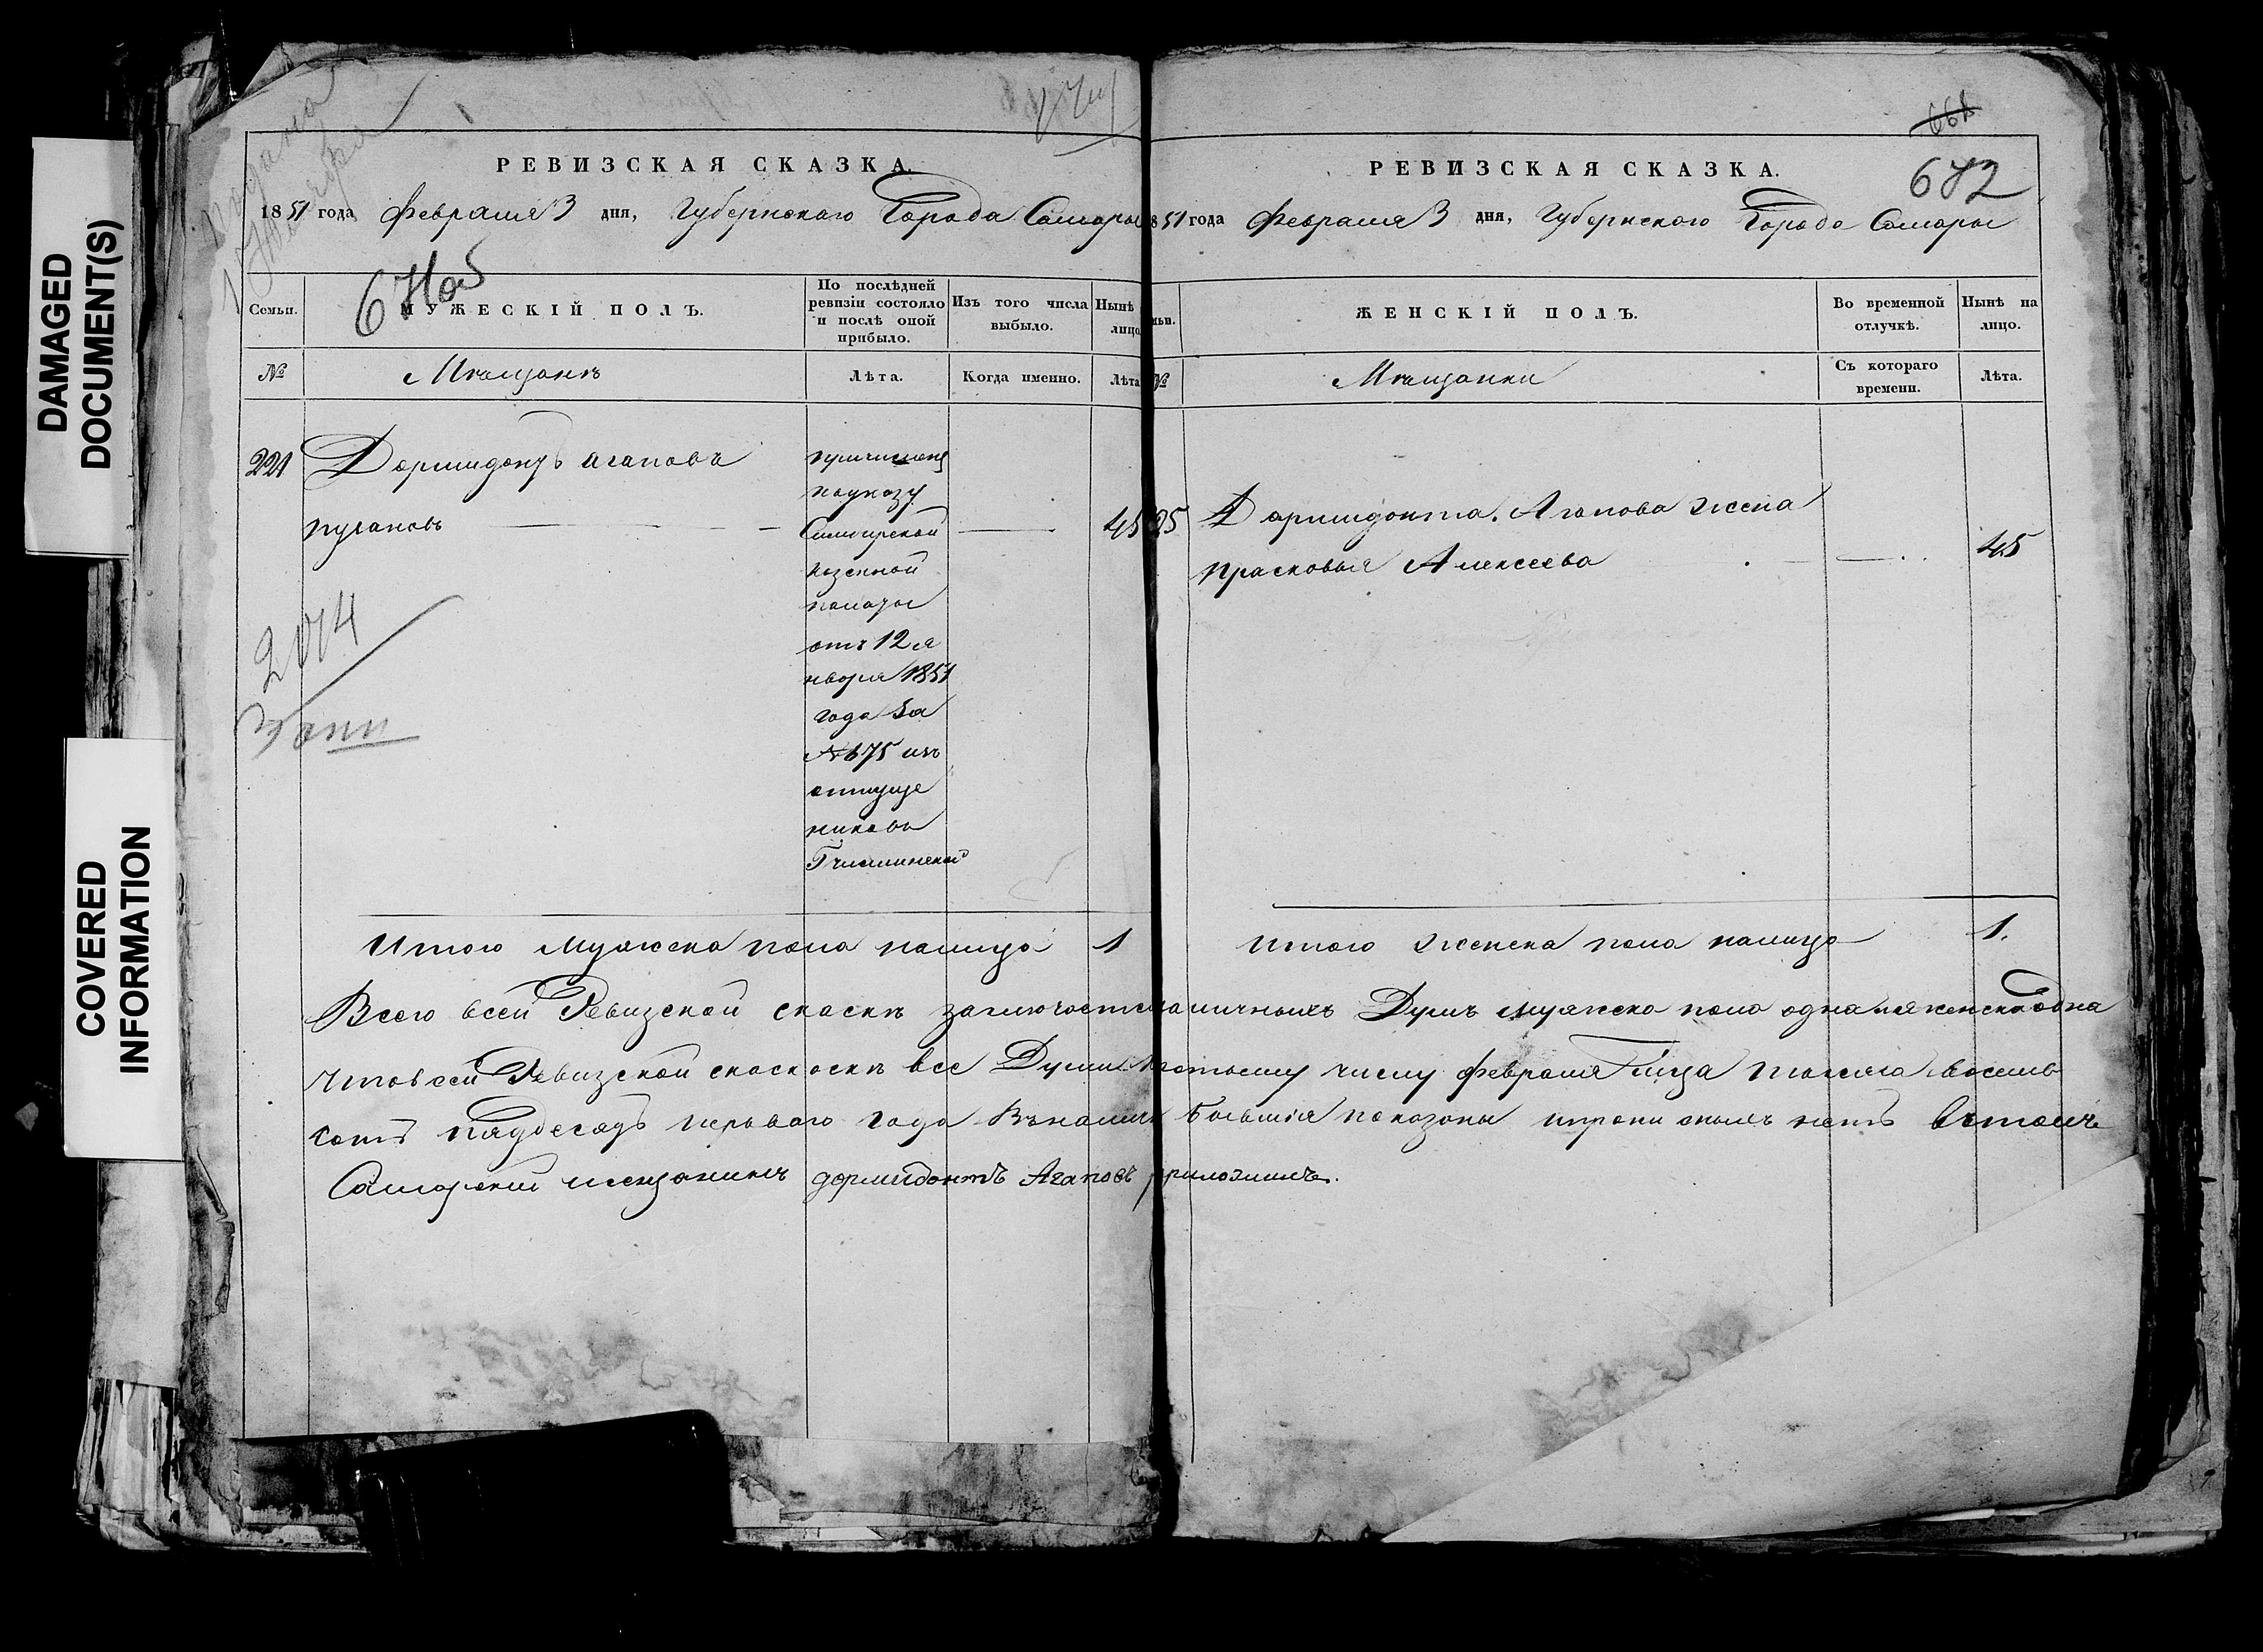 DAMAGED
DOCUMENT(S)
COVERED
INFORMATION
РЕВИЗСКАЯ СКАЗКА.
1851 года Февраля 3 дня, Губернскаго Города Самары
Семьи.
МУЖЕСКІЙ ПОЛЪ.
По послѣдней
ревизіи состояло
и послѣ оной
прибыло.
Изъ того числа
выбыло.
Нынѣ
лицо
№
Мѣщанъ
Лѣта.
Когда именно.
Лѣта
221
Дормидонтъ Агаповъ
причисленъ
поуказу
Пугановъ
Симбирской
45
казенной
палаты
отъ 12 я
нваря 1851
года за
№ 675 изъ
отпуще
никовъ
2014
Итого мужска пола налицо 1
РЕВИЗСКАЯ СКАЗКА.
661
682
851 года Февраля 3 дня, Губернскаго Города Самары
ьи.
ЖЕНСКІЙ ПОЛЪ.
Во временной
отлучкѣ.
Нынѣ на
лицо.
№
Мѣщанки
Съ котораго
времени.
Лѣта.
Дормидонта Агапова жена
Прасковья Алексеева
45
Итого женска пола налицо 1.
Всего всей Ревизской скаскѣ заключается наличныхъ Душъ мужска пола одна и женска одна
что всей Ревизской скаске все Души
числу Февраля месяца тысяча восемь
сотъ пядьдесядъ перьваго года Въналичн
показаны
нетъ втомъ
Самарский мещанинъ дормидонтъ Агаповъ приложилъ.